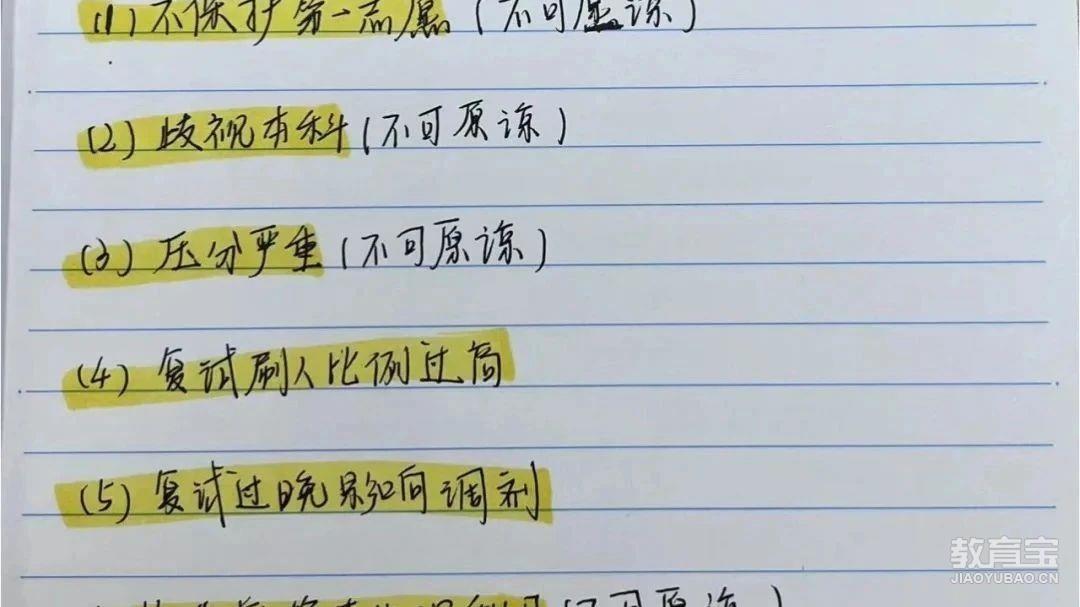 (1) 不保护第一志愿(不可原谅)
(2) 歧视本科(不可原谅)
(3) 压分严重(不可原谅)
(4) 复试刷人比例过高
(5) 复试过晚影响调剂
(不可原谅)
教育宝
JIAOYUBAO.CN